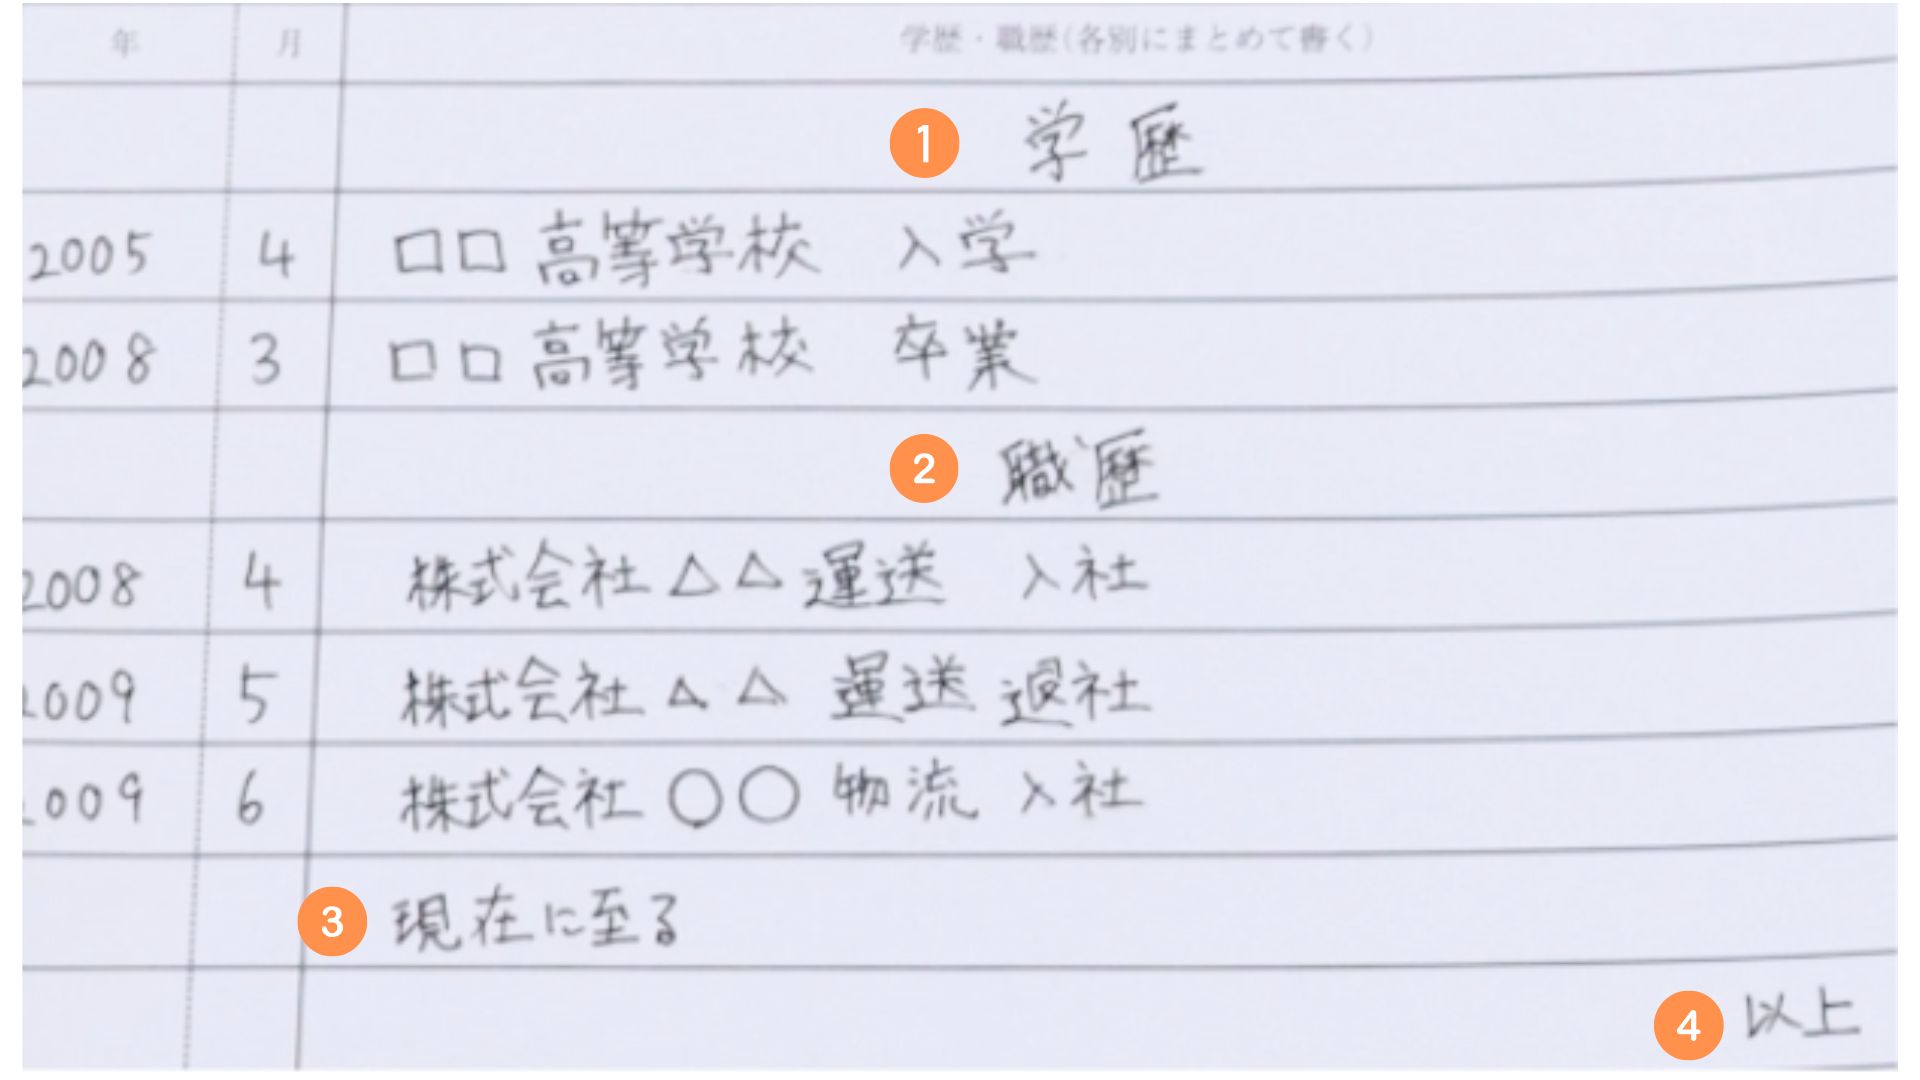 年 月 学歴・職歴(各別にまとめて書く)
1 学歴
2005 4 □□高等学校 入学
2008 3 □□高等学校 卒業
2 職歴
2008 4 株式会社△△運送 入社
2009 5 株式会社△△運送 退社
2009 6 株式会社○○物流 入社
3 現在に至る
4 以上